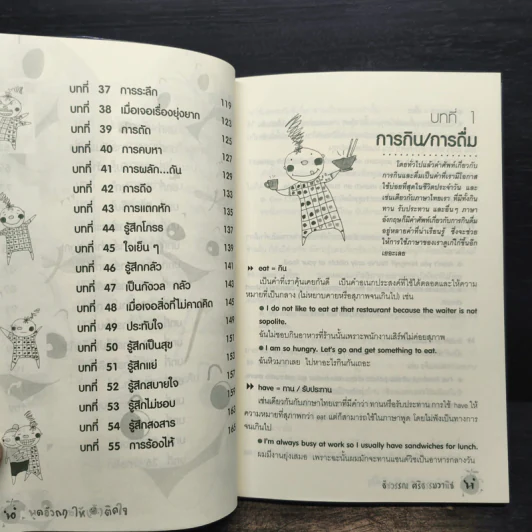 บทที่ 37 การระลึก 119
บทที่ 38 เมื่อเจอเรื่องยุ่งยาก 123
บทที่ 39 การตัด 125
บทที่ 40 การคบหา
บทที่ 41 การผลัก...ดัน
บทที่ 42 การดึง
บทที่ 43 การแตกหัก
บทที่ 44 รู้สึกโกรธ
บทที่ 45 ใจเย็น ๆ
บทที่ 46 รู้สึกกลัว
บทที่ 47 เป็นกังวล กลัว
บทที่ 48 เมื่อเจอสิ่งที่ไม่คาดคิด 145
บทที่ 49 ประทับใจ
บทที่ 50 รู้สึกเป็นสุข
บทที่ 51 รู้สึกแย่
บทที่ 52 รู้สึกสบายใจ
บทที่ 53 รู้สึกไม่ชอบ
บทที่ 54 รู้สึกสงสาร
บทที่ 55 การร้องไห้
บทที่ 1
การกิน/การดื่ม
โดยทั่วไปแล้วคำศัพท์เกี่ยวกับ
การกินและดื่มเป็นคำที่เรามีโอกาส
ใช้บ่อยที่สุดในชีวิตประจำวัน และ
เช่นเดียวกับภาษาไทยเรา ที่มีทั้งกิน
ทาน รับประทาน และอื่นๆ ภาษา
อังกฤษก็มีคำศัพท์เกี่ยวกับการกินดื่ม
อยู่หลายคำที่น่าเรียนรู้ ซึ่งจะช่วย
ให้การใช้ภาษาของเราดูเก๋ไก๋ขึ้นอีก
เยอะเลย
eat = กิน
เป็นคำที่เราคุ้นเคยกันดี เป็นคำอเนกประสงค์ที่ใช้ได้ตลอดและให้ความ
หมายที่เป็นกลาง (ไม่หยาบคายหรือสุภาพจนเกินไป) เช่น
● I do not like to eat at that restaurant because the waiter is not
sopolite.
ฉันไม่ชอบกินอาหารที่ร้านนั้นเพราะพนักงานเสิร์ฟไม่ค่อยสุภาพ
● I am so hungry. Let's go and get something to eat.
ฉันหิวมากเลย ไปหาอะไรกินกันเถอะ
have = ทาน / รับประทาน
เช่นเดียวกันกับภาษาไทยเราที่มีคำว่า ทานหรือรับประทาน การใช้ have ให้
ความหมายที่สุภาพกว่า eat แต่ก็สามารถใช้ในภาษาพูด โดยไม่ฟังเป็นทางการ
จนเกินไป
● I'm always busy at work so I usually have sandwiches for lunch.
ผมมีงานยุ่งเสมอ เพราะฉะนั้นผมมักจะทานแซนด์วิชเป็นอาหารกลางวัน